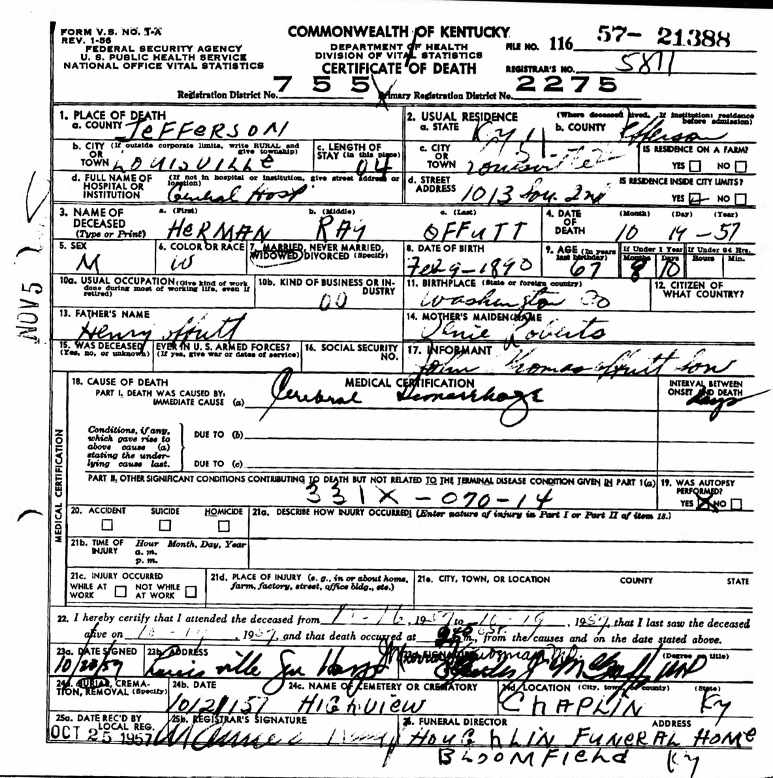 FORM V.S. NO. 1-A
REV. 1-56
FEDERAL SECURITY AGENCY
U. S. PUBLIC HEALTH SERVICE
NATIONAL OFFICE VITAL STATISTICS
COMMONWEALTH OF KENTUCKY
DEPARTMENT OF HEALTH
DIVISION OF VITAL STATISTICS
CERTIFICATE OF DEATH
FILE NO. 116 57- 21388
REGISTRAR'S NO. 5811
Registration District No. 755 Primary Registration District No. 2275
1. PLACE OF DEATH
a. COUNTY JEFFERSON
2. USUAL RESIDENCE (Where deceased lived. If institution: residence before admission)
a. STATE Ky b. COUNTY Jefferson
b. CITY (If outside corporate limits, write RURAL and give township)
OR
TOWN LOUISVILLE
c. LENGTH OF
STAY (in this place)
c. CITY
OR
TOWN Louisville
IS RESIDENCE ON A FARM?
YES NO
d. FULL NAME OF (If not in hospital or institution, give street address or location)
HOSPITAL OR
INSTITUTION General Hosp
d. STREET
ADDRESS 1013 Sou. 2nd
IS RESIDENCE INSIDE CITY LIMITS?
YES NO
3. NAME OF
DECEASED
(Type or Print)
a. (First) HERMAN
b. (Middle) RAY
c. (Last) OFFUTT
4. DATE OF DEATH (Month) (Day) (Year)
10 19-57
5. SEX
M
6. COLOR OR RACE
W
7. MARRIED, NEVER MARRIED,
WIDOWED DIVORCED (Specify)
8. DATE OF BIRTH
Feb 9-1890
9. AGE (In years last birthday)
67
If Under 1 Year If Under 24 Hrs.
Months Days Hours Min.
8 10
10a. USUAL OCCUPATION (Give kind of work done during most of working life, even if retired)
10b. KIND OF BUSINESS OR INDUSTRY
00
11. BIRTHPLACE (State or foreign country)
Washington Co
12. CITIZEN OF
WHAT COUNTRY?
13. FATHER'S NAME
Henry Offutt
14. MOTHER'S MAIDEN NAME
Roberts
15. WAS DECEASED EVER IN U.S. ARMED FORCES?
(Yes, no, or unknown) (If yes, give war or dates of service)
16. SOCIAL SECURITY
NO.
17. INFORMANT
John Thomas Offutt Son
18. CAUSE OF DEATH
MEDICAL CERTIFICATION
INTERVAL BETWEEN
ONSET AND DEATH
PART I. DEATH WAS CAUSED BY:
IMMEDIATE CAUSE (a) Cerebral Hemorrhage days
Conditions, if any,
which gave rise to
above cause (a)
stating the under-
lying cause last.
DUE TO (b)
DUE TO (c)
MEDICAL CERTIFICATION
PART II, OTHER SIGNIFICANT CONDITIONS CONTRIBUTING TO DEATH BUT NOT RELATED TO THE TERMINAL DISEASE CONDITION GIVEN IN PART 1(a)
331X-070-14
19. WAS AUTOPSY
PERFORMED?
YES NO
20. ACCIDENT SUICIDE HOMICIDE
21a. DESCRIBE HOW INJURY OCCURRED: (Enter nature of injury in Part I or Part II of item 18.)
21b. TIME OF Hour Month, Day, Year
INJURY a. m.
p. m.
21c. INJURY OCCURRED
WHILE AT WORK NOT WHILE AT WORK
21d. PLACE OF INJURY (e. g., in or about home, farm, factory, street, office bldg., etc.)
21e. CITY, TOWN, OR LOCATION COUNTY STATE
22. I hereby certify that I attended the deceased from 1957 to 10-19, 1957, that I last saw the deceased
alive on 10-19, 1957, and that death occurred at m., from the causes and on the date stated above.
23a. DATE SIGNED
10/20/57
23b. ADDRESS
Louisville Gen Hosp
(Degree or title)
24a. BURIAL, CREMATION, REMOVAL (Specify)
24b. DATE
10/21/57
24c. NAME OF CEMETERY OR CREMATORY
HIGHVIEW
24d. LOCATION (City, town, or county) (State)
CHAPLIN Ky
25a. DATE REC'D BY
LOCAL REG.
OCT 25 1957
25b. REGISTRAR'S SIGNATURE
26. FUNERAL DIRECTOR ADDRESS
HOUGHLIN FUNERAL HOME
BLOOMFIELD Ky
NOV 5